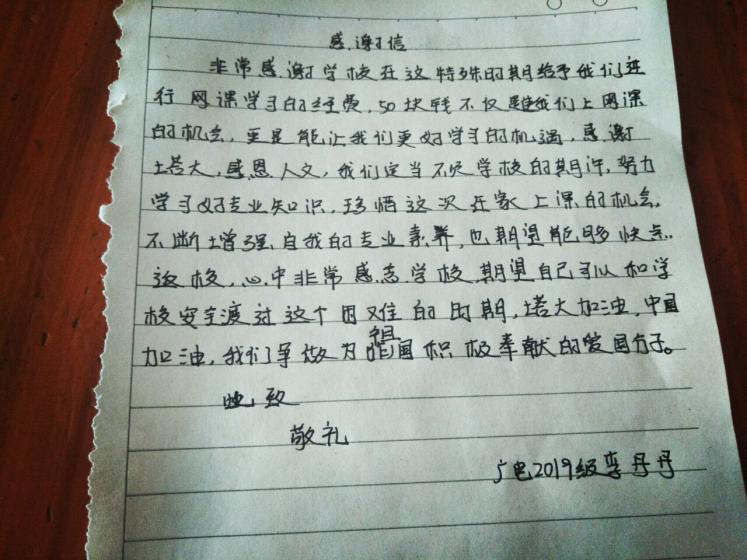 感谢信
非常感谢学校在这特殊时期给予我们进
行网课学习的经费，50块钱不仅是我们上网课
的机会，更是能让我们更好学习的机遇，感谢
塔大，感恩人文，我们定当不负学校的期许，努力
学习好专业知识，珍惜这次在家上课的机会，
不断增强自我的专业素养，也期望能够快点
返校，心中非常感恩学校，期望自己可以和学
校安全渡过这个困难的时期，塔大加油，中国
加油，我们争做为祖国积极奉献的爱国分子。
此致
敬礼
广电2019级李丹丹